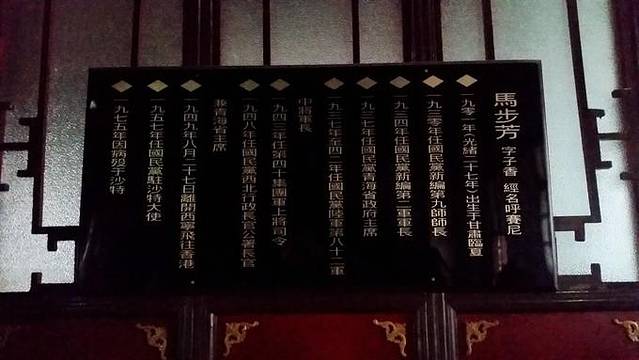 馬步芳 字子香 經名呼賽尼
一九〇一年(光緒二十七年)出生于甘肅臨夏
一九三〇年任國民黨新編第九師師長
一九三四年任國民黨新編第二軍軍長
一九三七年任國民黨青海省政府主席
一九三七年至四二年任國民黨陸軍第八十二軍
中將軍長
一九四三年任第四十集團軍上將司令
一九四八年任國民黨西北行政長官公署長官
兼青海省主席
一九四九年八月二十七日離開西寧飛往香港
一九五七年任國民黨駐沙特大使
一九七五年因病殁于沙特